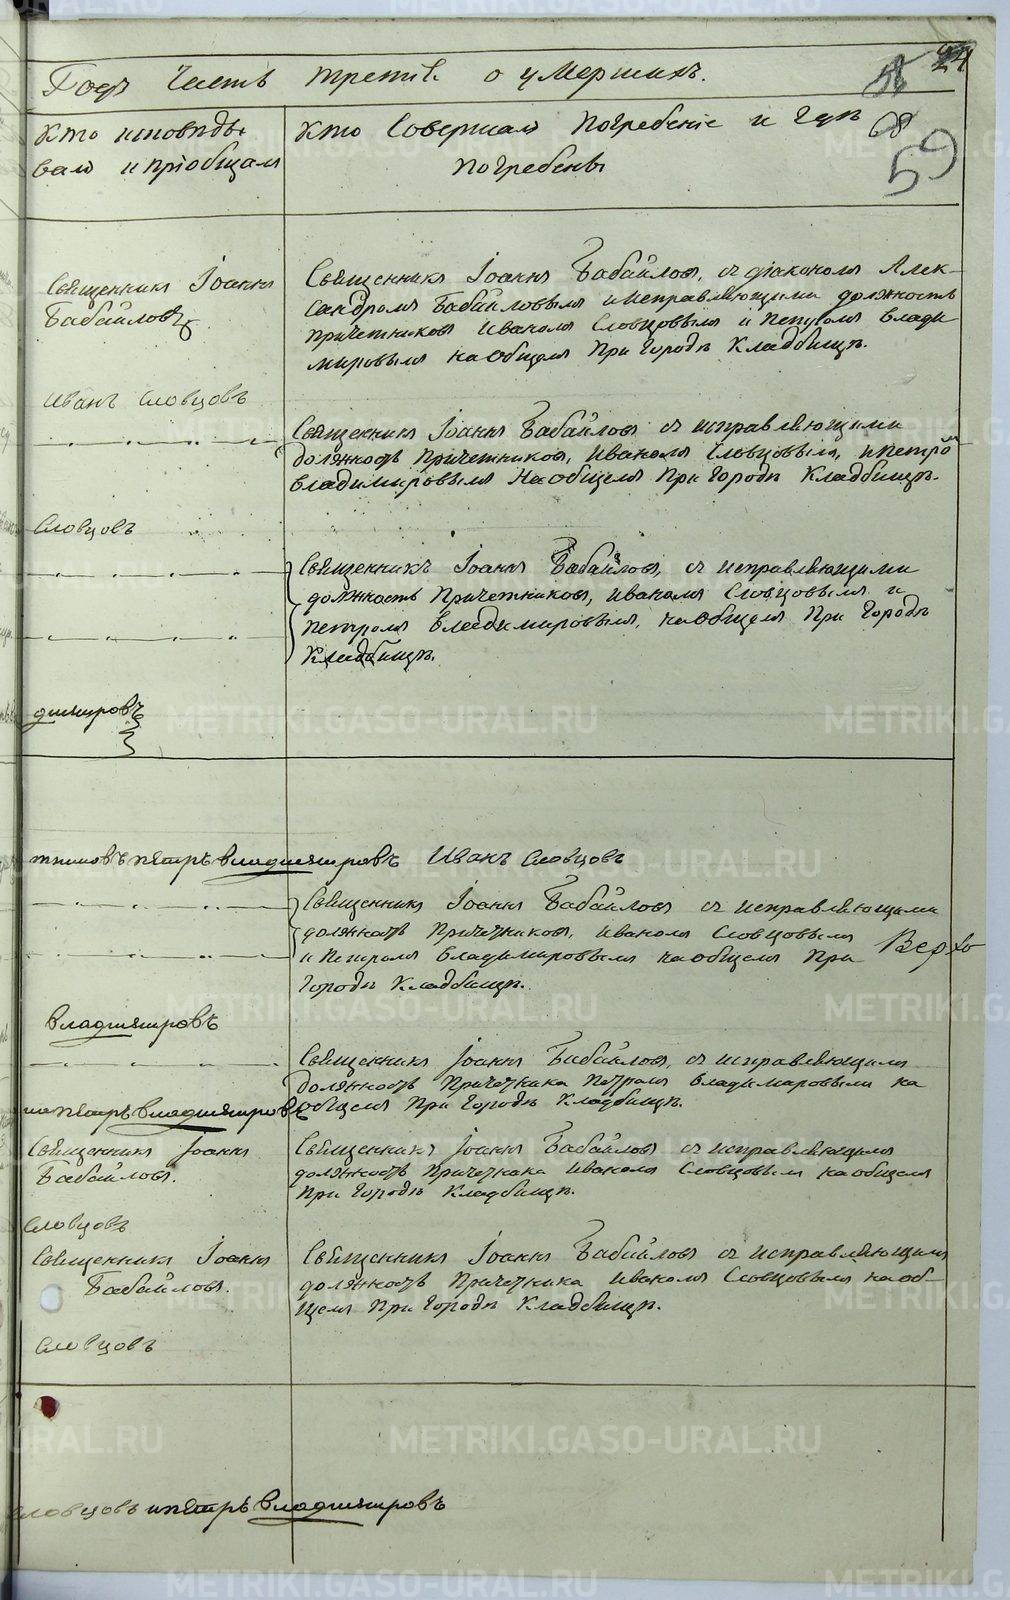 Годъ Часть третiя о умершихъ.
59
Кто исповѣды-
валъ и прiобщалъ
Кто Совершалъ погребенiе и гдѣ
погребены
Священникъ Iоаннъ
Бабайловъ
Священникъ Iоаннъ Бабайловъ, съ дiакономъ Алек-
сандромъ Бабайловымъ и исправляющими должность
причетниковъ Иваномъ Словцовымъ и Петромъ Влади
мировымъ на общемъ При городѣ Кладбищѣ.
Иванъ Словцовъ
Священникъ Iоаннъ Бабайловъ съ исправляющими
должность причетниковъ, Иваномъ Словцовымъ, и Петромъ
Владимировымъ На общемъ При городѣ Кладбищѣ.
Словцовъ
Священникъ Iоаннъ Бабайловъ, съ исправляющими
должность Причетниковъ, Иваномъ Словцовымъ и
Петромъ Владимировымъ, на общемъ При городѣ
Кладбищѣ.
димировъ
Петръ Владимировъ Иванъ Словцовъ
Священникъ Iоаннъ Бабайловъ съ исправляющими
должность Причетниковъ, Иваномъ Словцовымъ
и Петромъ Владимировымъ на общемъ При
Верхо
городѣ Кладбищѣ.
Владимировъ
Священникъ Iоаннъ Бабайловъ, съ исправляющимъ
должность Причетника Петромъ Владимировымъ на
Петръ Владимировъ
общемъ При городѣ Кладбищѣ.
Священникъ Iоаннъ
Бабайловъ.
Священникъ Iоаннъ Бабайловъ съ исправляющимъ
должность Причетника Иваномъ Словцовымъ на общемъ
При городѣ Кладбищѣ.
Словцовъ
Священникъ Iоаннъ
Бабайловъ.
Священникъ Iоаннъ Бабайловъ съ исправляющимъ
должность Причетника Иваномъ Словцовымъ на об-
щемъ При городѣ Кладбищѣ.
Словцовъ
ловцовъ и Петръ Владимировъ
METRIKI.GASO-URAL.RU